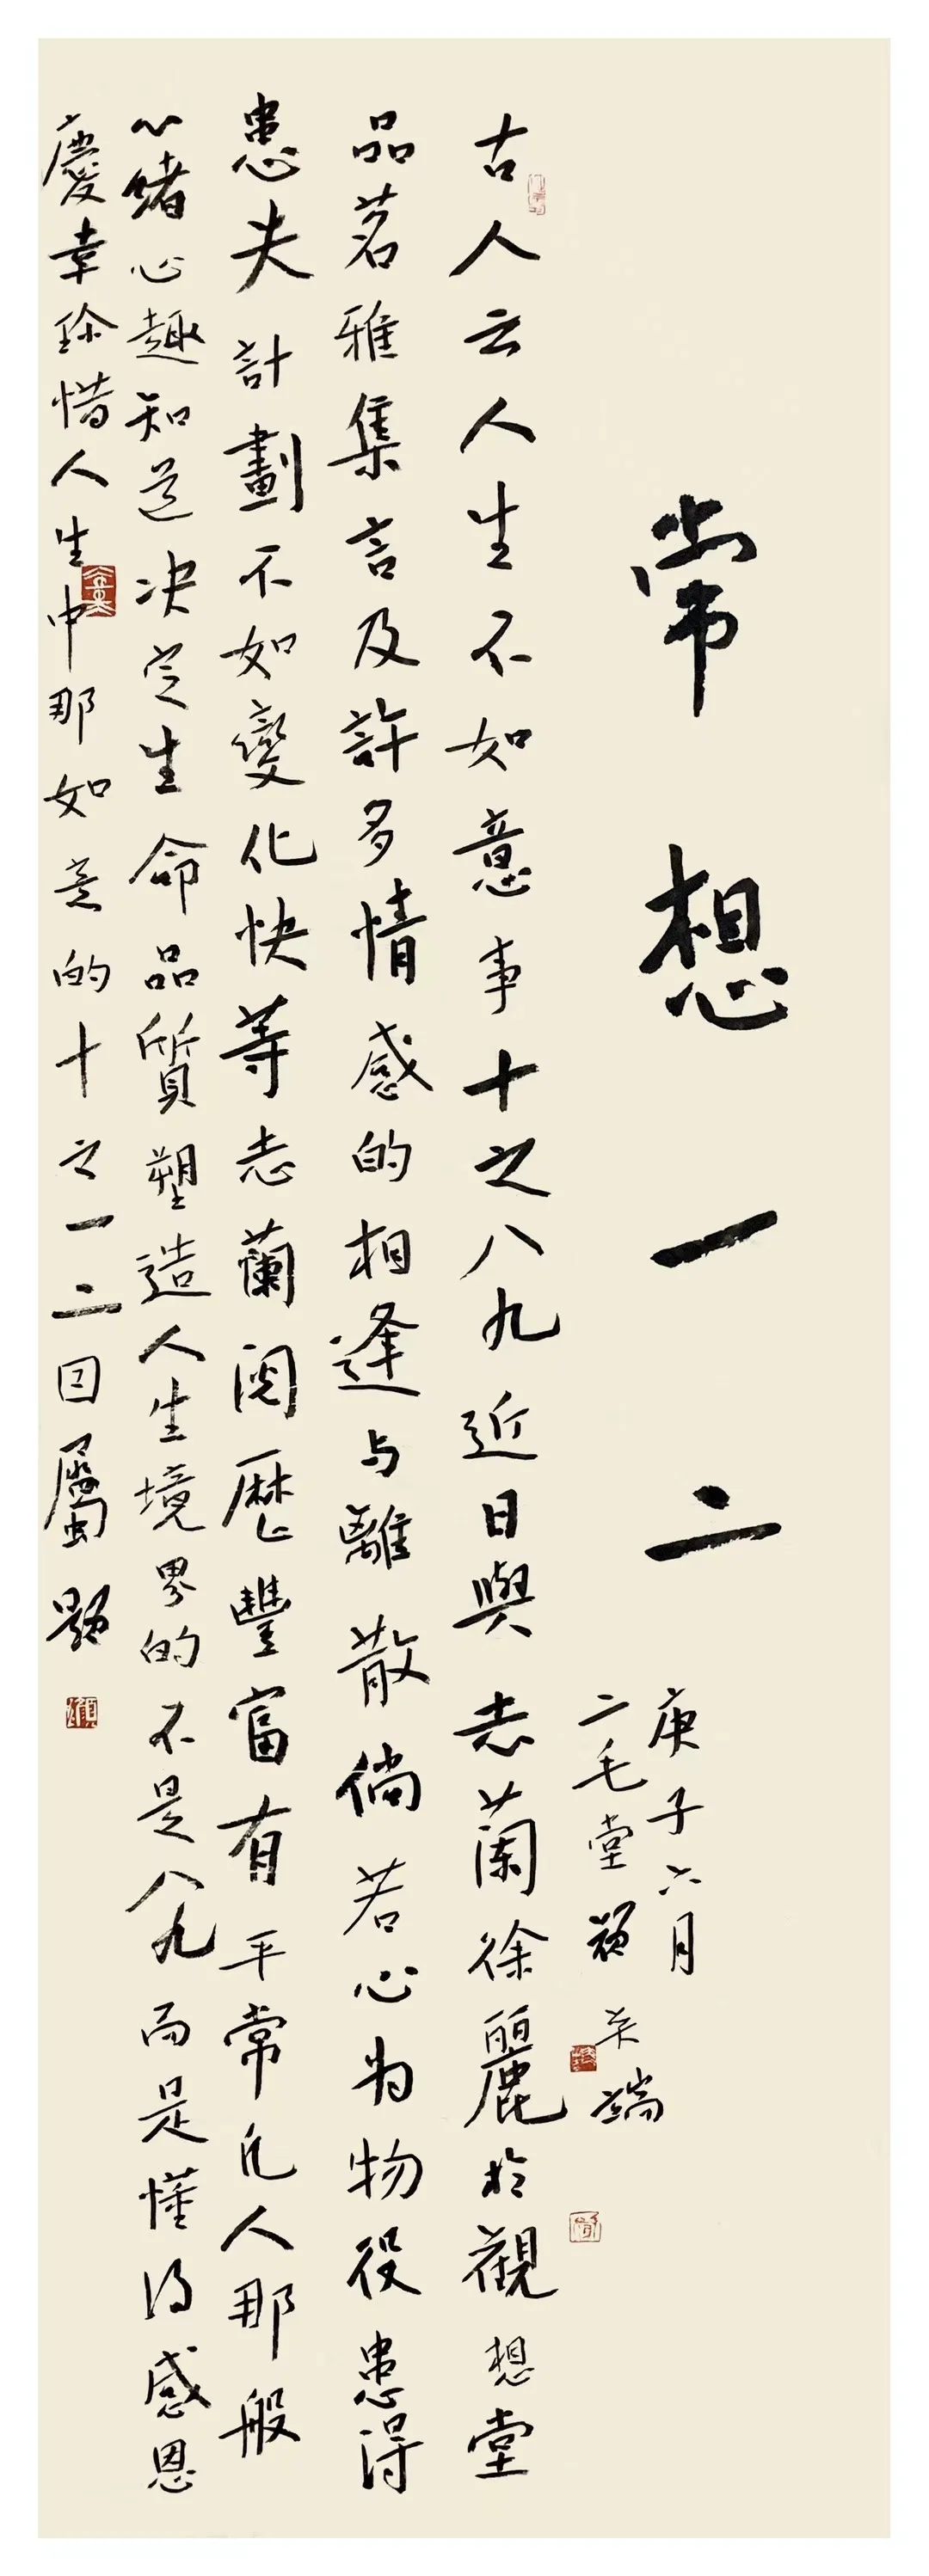 常想一二
庚子六月
二毛堂 顽 耒端
古人云人生不如意事十之八九近日與志蘭徐麗於觀想堂
品茗雅集言及許多情感的相逢与離散倘若心为物役患得
患失計劃不如變化快等志蘭阅歷豐富有平常凡人那般
心绪心趣知道决定生命品質塑造人生境界的不是八九而是懂得感恩
慶幸珍惜人生中那如意的十之一二因屬题